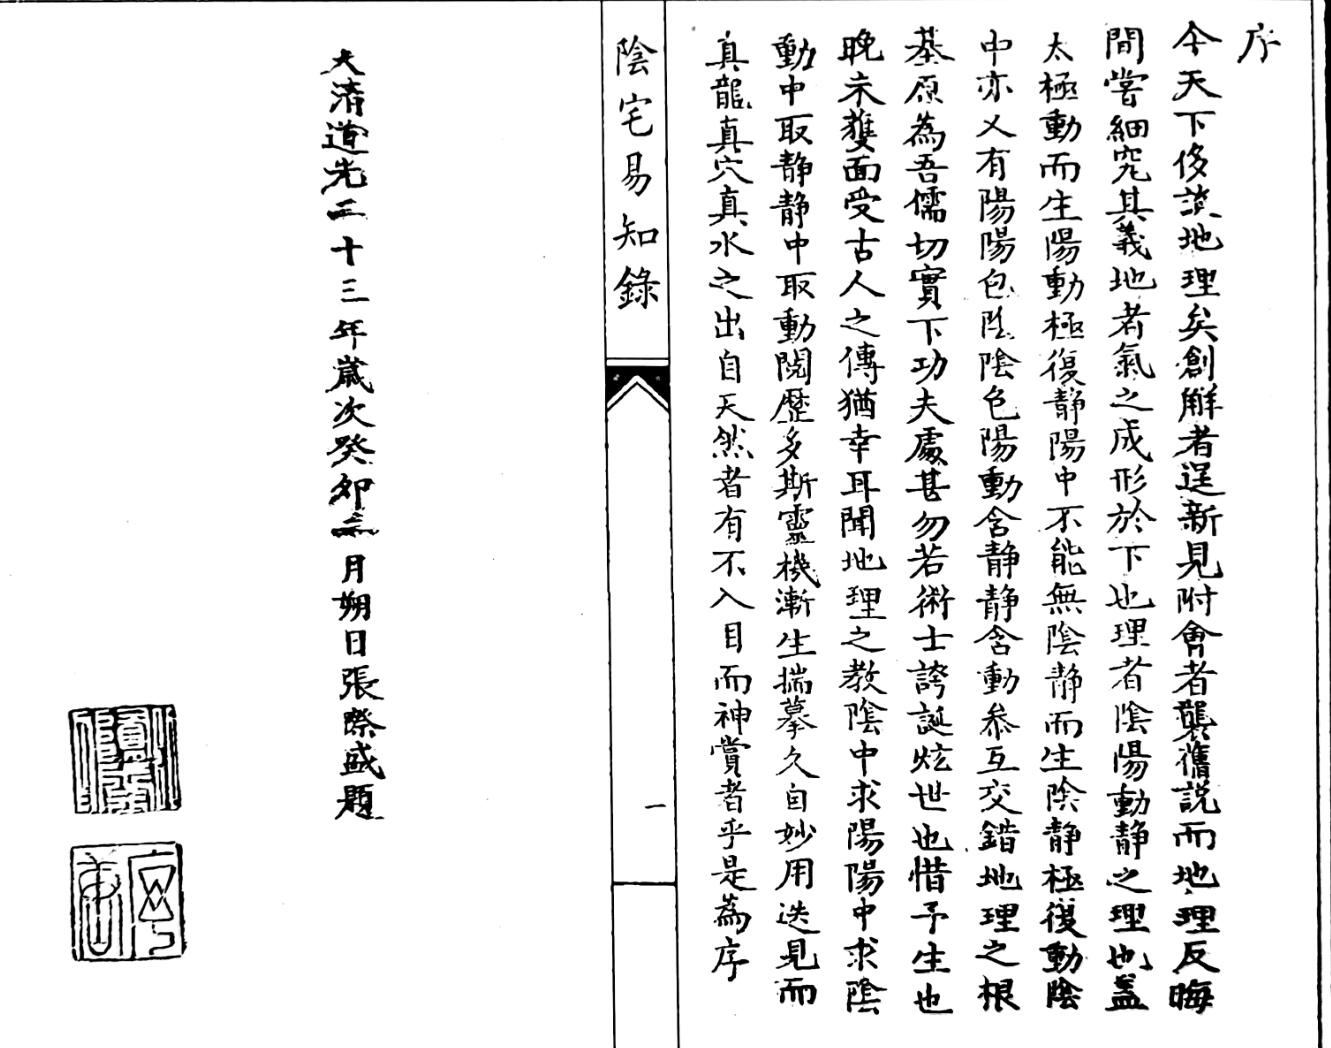 序
今天下侈談地理矣創解者逞新見附會者襲舊説而地理反晦
間嘗細究其義地者氣之成形於下也理者陰陽動静之理也蓋
太極動而生陽動極復静陽中不能無陰静而生陰静極復動陰
中亦乂有陽陽包陰陰色陽動含静静含動叅互交錯地理之根
基原為吾儒切實下功夫處甚勿若術士誇誕炫世也惜予生也
晚未獲面受古人之傳猶幸耳聞地理之教陰中求陽陽中求陰
動中取静静中取動閱歷多斯靈機漸生揣摹久自妙用迭見而
真龍真穴真水之出自天然者有不入目而神賞者乎是為序
陰宅易知錄
一
大清道光二十三年歲次癸卯月朔日張際盛題